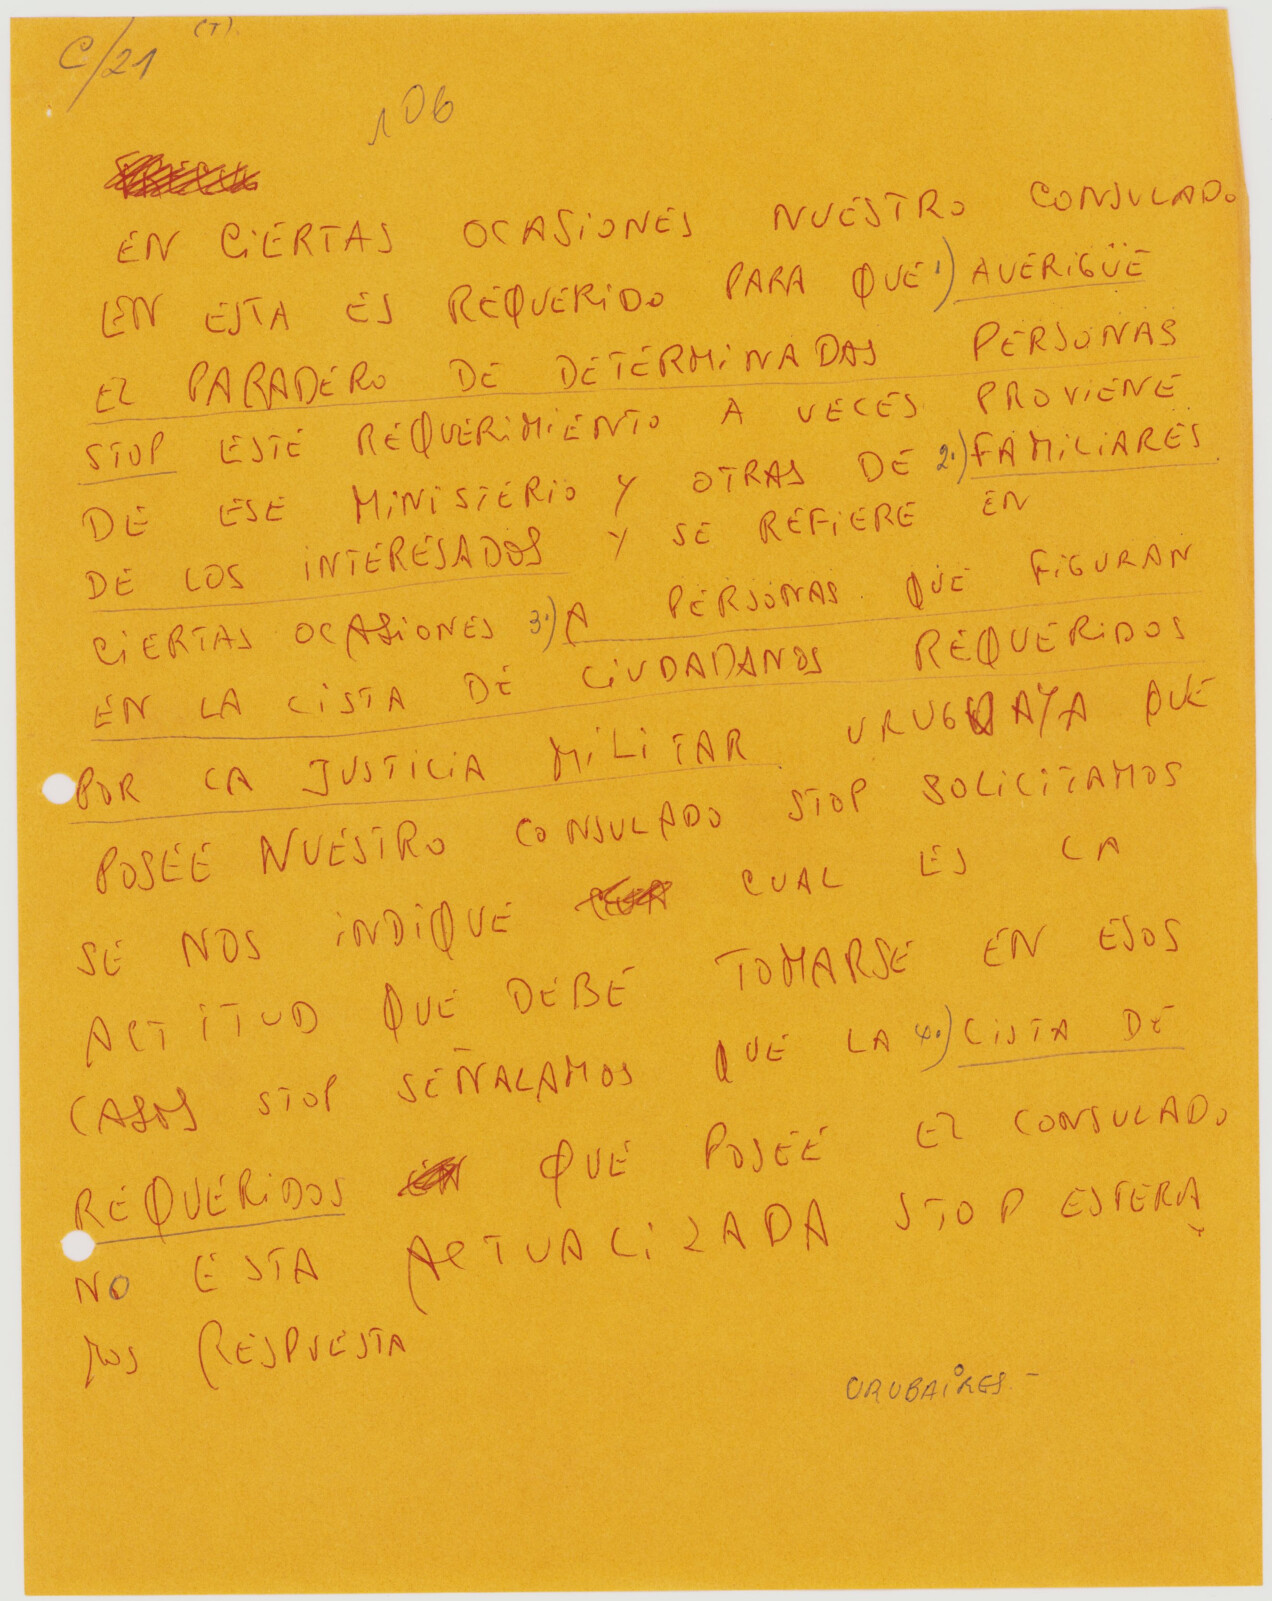 C/21 (T).
106
EN CIERTAS OCASIONES NUESTRO CONSULADO
EN ESTA ES REQUERIDO PARA QUE 1) AVERIGÜE
EL PARADERO DE DETERMINADAS PERSONAS
STOP ESTE REQUERIMIENTO A VECES PROVIENE
DE ESE MINISTERIO Y OTRAS DE 2.) FAMILIARES
DE LOS INTERESADOS Y SE REFIERE EN
CIERTAS OCASIONES 3.) A PERSONAS QUE FIGURAN
EN LA LISTA DE CIUDADANOS REQUERIDOS
POR LA JUSTICIA MILITAR URUGUAYA QUE
POSEE NUESTRO CONSULADO STOP SOLICITAMOS
SE NOS INDIQUE CUAL ES LA
ACTITUD QUE DEBE TOMARSE EN ESOS
CASOS STOP SEÑALAMOS QUE LA 4.) LISTA DE
REQUERIDOS QUE POSEE EL CONSULADO
NO ESTA ACTUALIZADA STOP ESPERA
MOS RESPUESTA
URUBAIRES.-